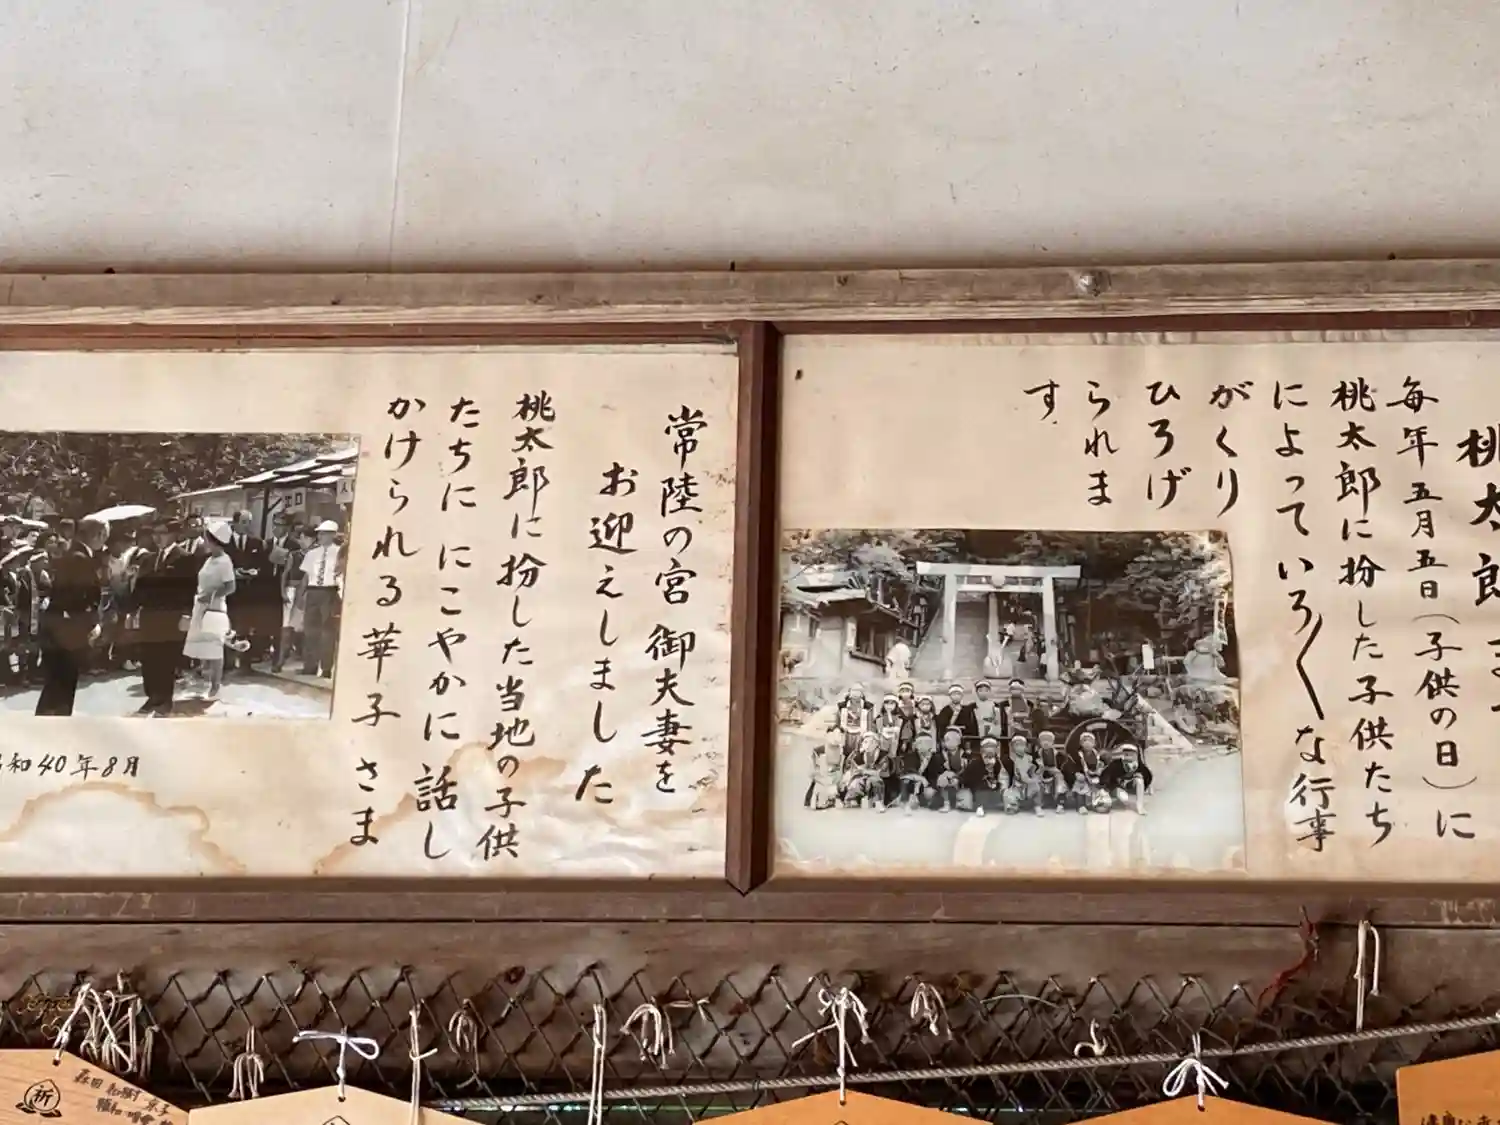 桃太郎まつ
毎年五月五日(子供の日)に
桃太郎に扮した子供たち
によっていろ〱な行事
がくり
ひろげ
られま
す.
常陸の宮御夫妻を
お迎えしました
桃太郎に扮した当地の子供
たちに にこやかに話し
かけられる華子さま
和40年8月
入口
祈